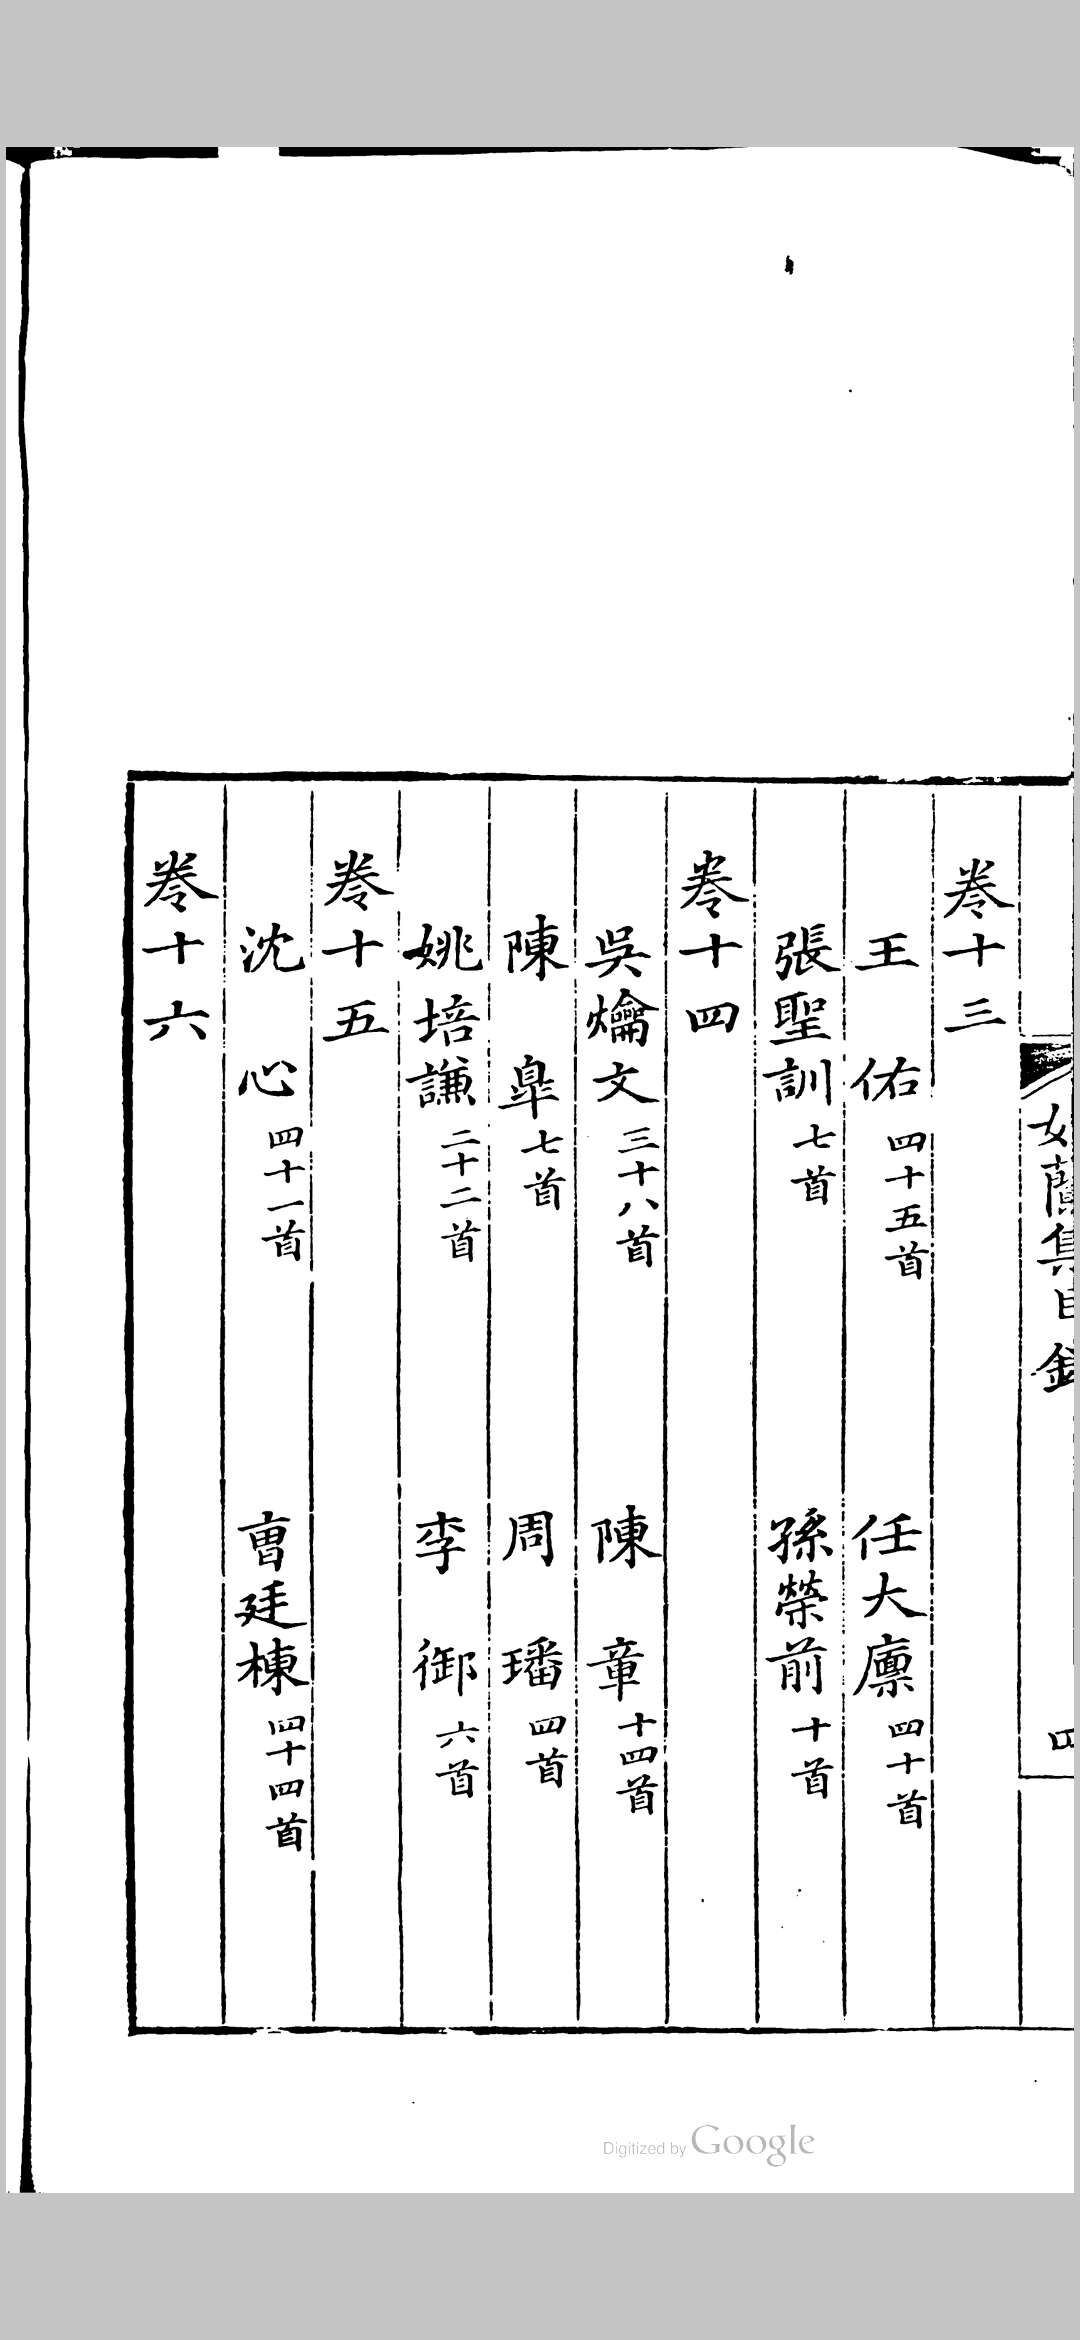 卷十三
王 佑 四十五首 任大廪 四十首
張聖訓 七首 孫榮前 十首
卷十四
吳爚文 三十八首 陳 章 十四首
陳 臯 七首 周 璠 四首
姚培謙 二十二首 李 御 六首
卷十五
沈 心 四十一首 曹廷棟 四十四首
卷十六
集目錄
四
Digitized by Google